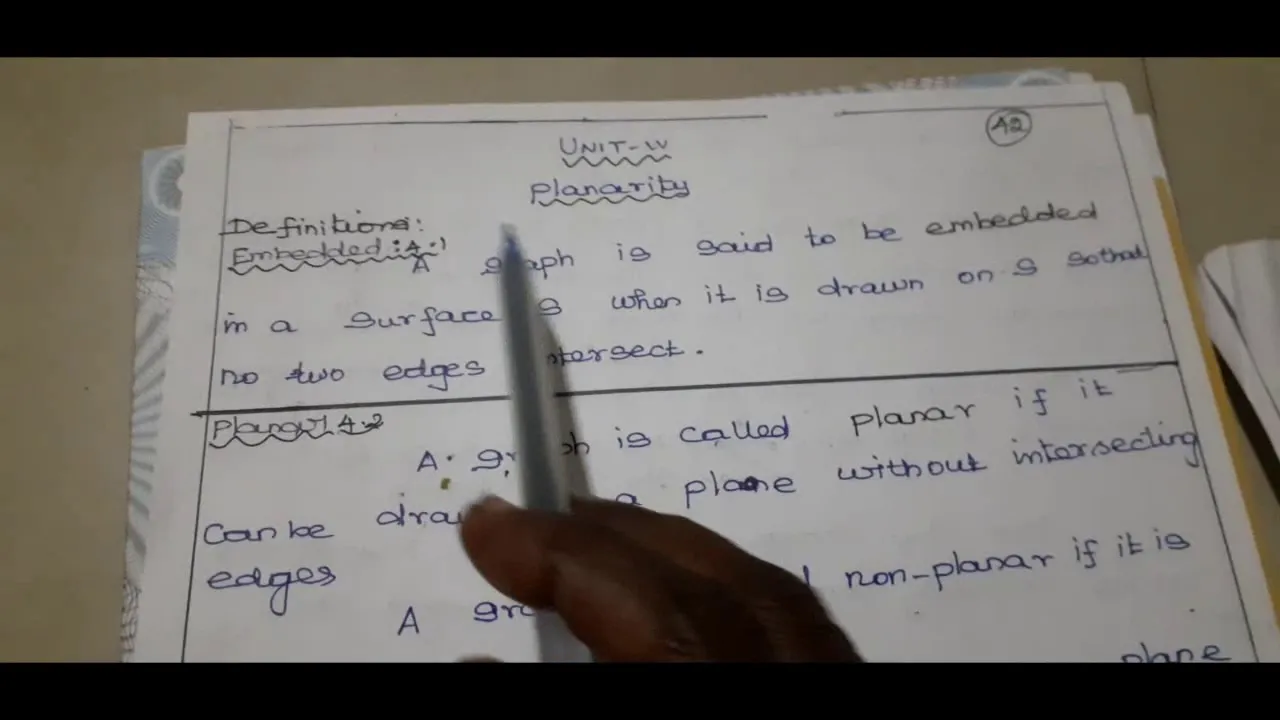 42
UNIT-IV
Planarity
Definitions:
Embedded: 4.1
A graph is said to be embedded
in a surface S when it is drawn on S so that
no two edges intersect.
Planar 4.2
A is called planar if it
can be a plane without intersecting
edges
A non-planar if it is
plane